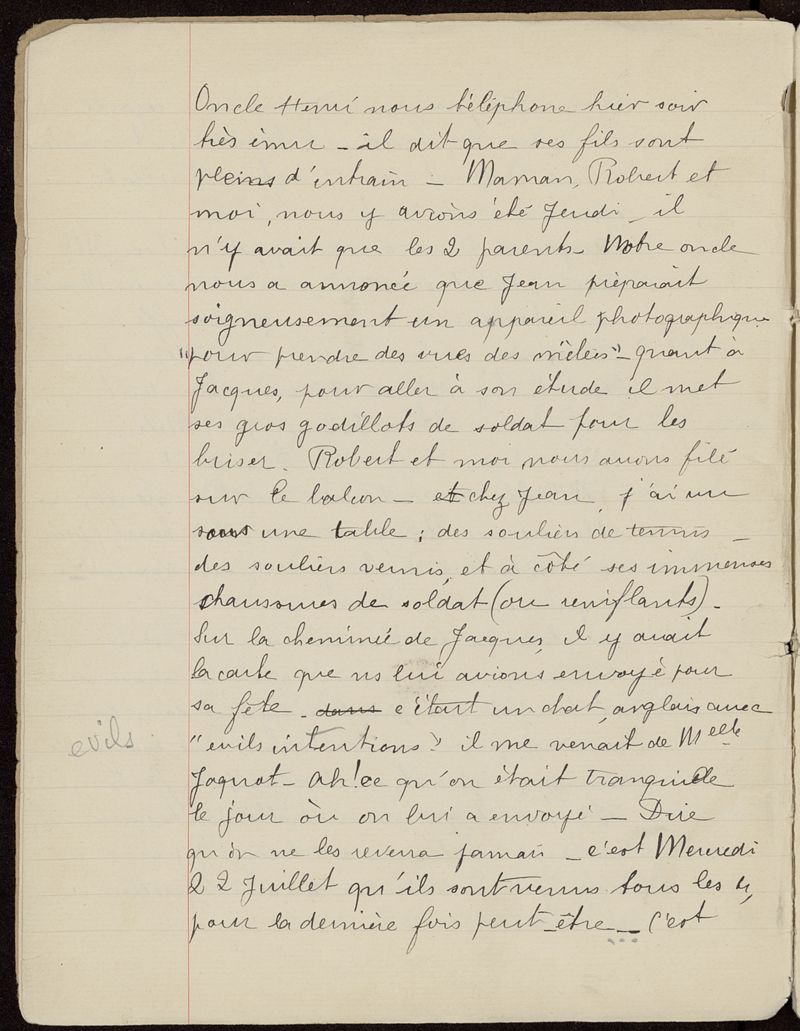 Oncle Henri nous téléphone hier soir
très ému – il dit que ses fils sont
pleins d'entrain – Maman, Robert et
moi, nous y avions été Jeudi – il
n'y avait que les 2 parents – Notre oncle
nous a annoncé que Jean préparait
soigneusement un appareil photographique
"pour prendre des vues des mêlées" – quant à
Jacques, pour aller à son étude il met
ses gros godillots de soldat pour les
briser. Robert et moi nous avons filé
sur le balcon – et chez Jean, j'ai vu
sous une table : des souliers de tennis –
des souliers vernis, et à côté ses immenses
chaussures de soldat (ou reniflants) –
Sur la cheminée de Jacques, il y avait
la carte que ns lui avions envoyé pour
sa fête – dans c'était un chat anglais avec
"evils intentions" il me venait de Melle
evils
Jaquot – Ah! ce qu'on était tranquille
le jour où on lui a envoyé – Dire
qu'on ne les reverra jamais – c'est Mercredi
22 Juillet qu'ils sont venus tous les 4,
pour la dernière fois peut-être – C'est